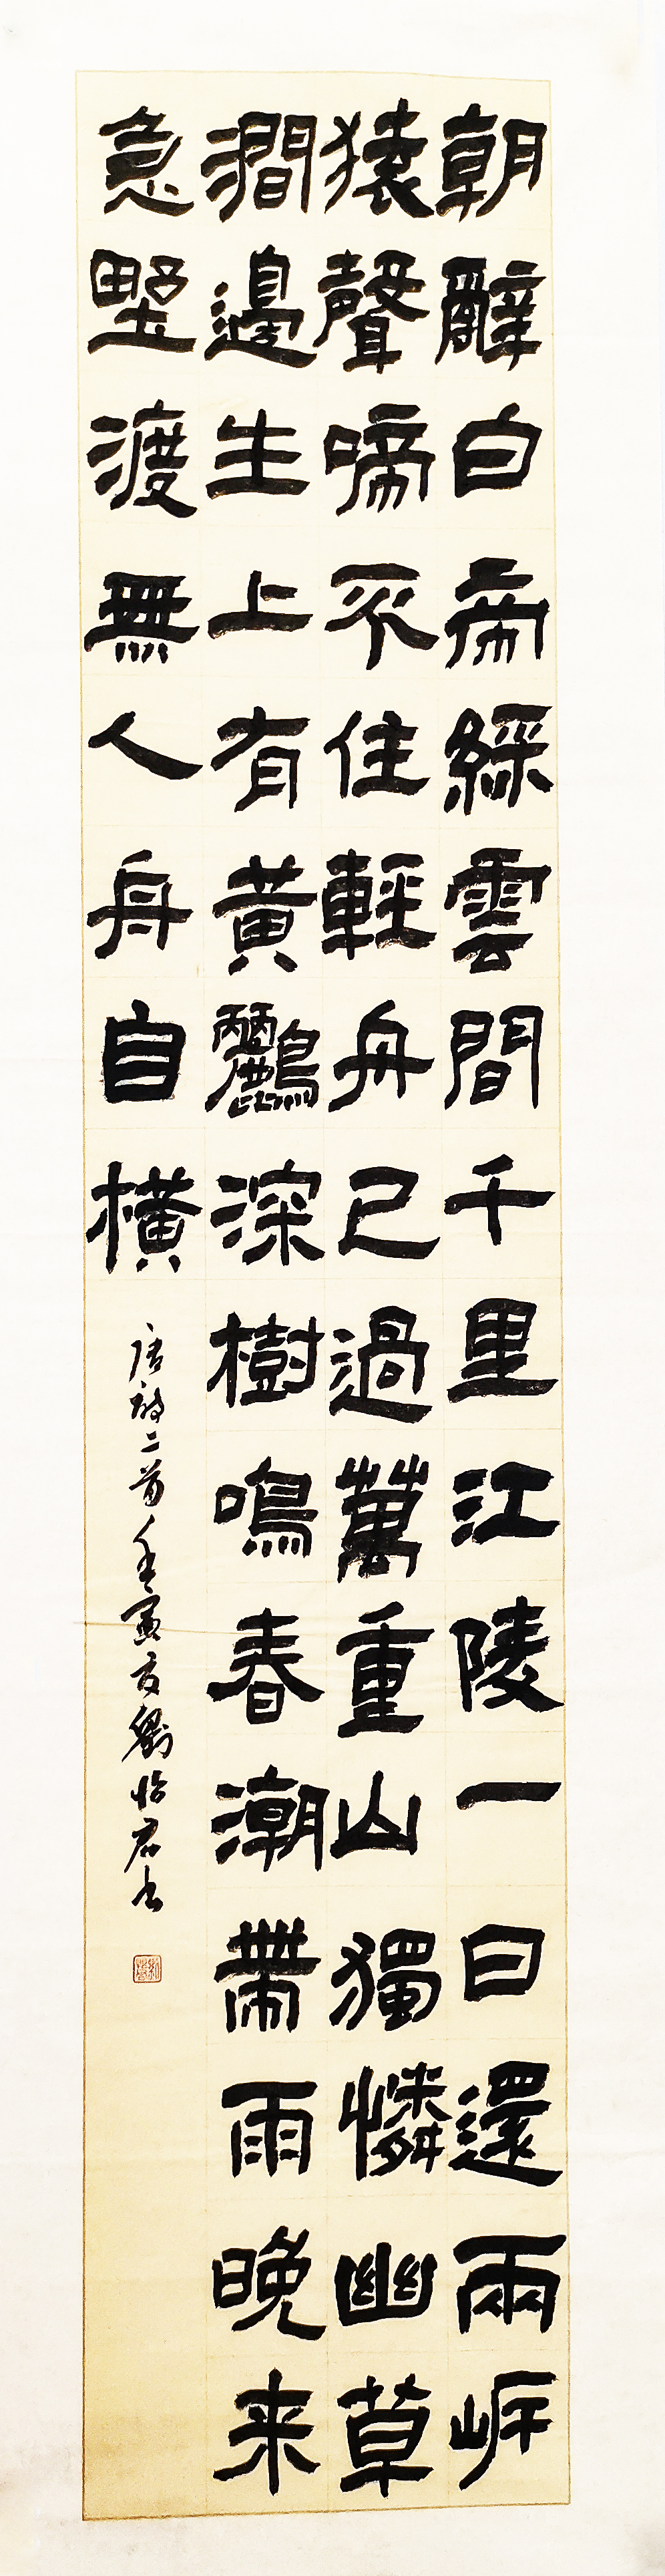 朝辭白帝綵雲間千里江陵一日還兩岸
猿聲啼不住輕舟已過萬重山獨憐幽草
澗邊生上有黃鸝深樹鳴春潮帶雨晚来
急野渡無人舟自橫
唐詩二首壬寅夏劉怡君书